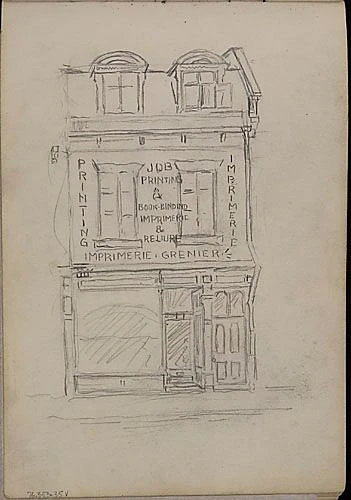 PRINTING
JOB
PRINTING
&
BOOK-BINDING
IMPRIMERIE
&
RELIURE
IMPRIMERIE
IMPRIMERIE · GRENIER